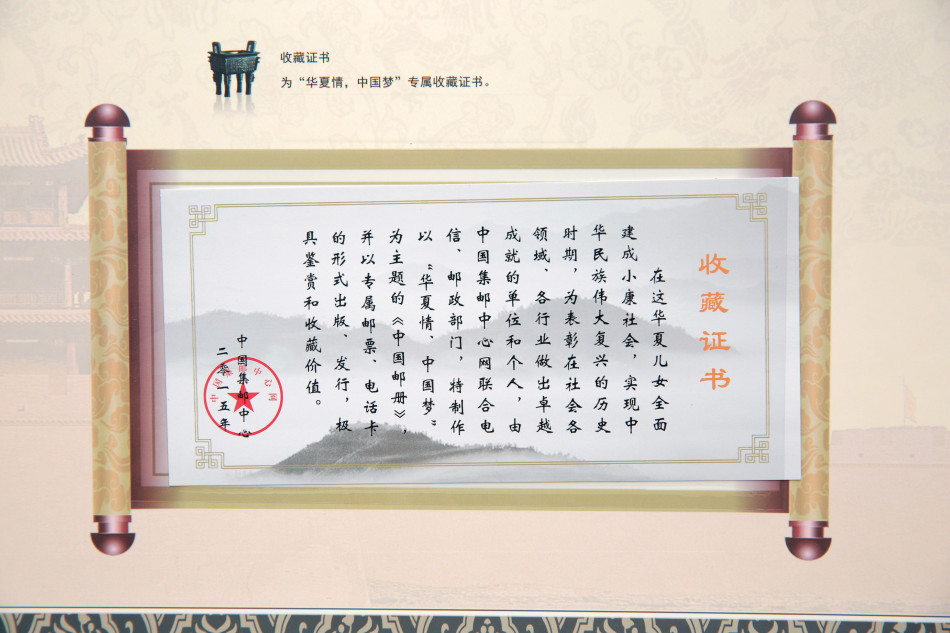 收藏证书
为“华夏情，中国梦”专属收藏证书。
收藏证书
在这华夏儿女全面
建成小康社会，实现中
华民族伟大复兴的历史
时期，为表彰在社会各
领域、各行业做出卓越
成就的单位和个人，由
中国集邮中心网联合电
信、邮政部门，特制作
以“华夏情、中国梦”
为主题的《中国邮册》，
并以专属邮票、电话卡
的形式出版、发行，极
具鉴赏和收藏价值。
中国集邮中心
二零一五年
中国集邮中心网